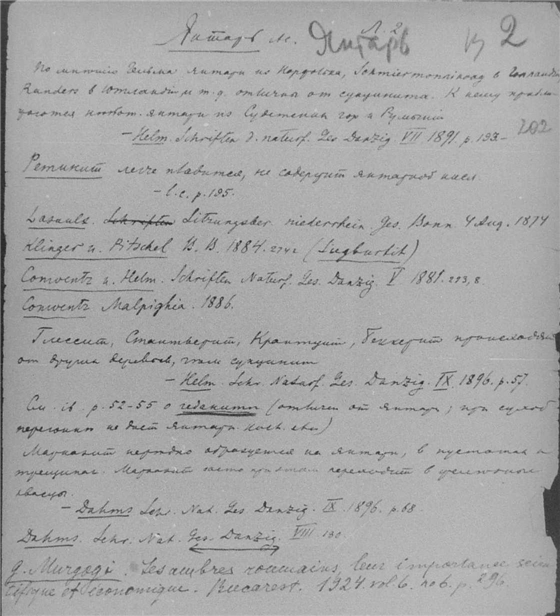 Янтарь м. Л. 2 Янтарь 2
По мнению Гельма янтари из Schmiermonnikoog в
Randers в Ютландии и т.д. отличны от сукцинита. К нему
янтари из Судетских гор и Румынии
202
– Helm. Schriften d. naturf. Ges Danzig VII 1891 p. 193–
Ретинит легче плавится, не содержит янтарной кисл.
– l.c. p. 195.
Lasaulx. Schriften Sitzungsber. niederrhein Ges. Bonn. 4 Aug. 1874
Klinger u. Pitschel B. B. 1884. 2742 (Siegburtit)
Conwentz u. Helm. Schriften Naturf. Ges. Danzig. V 1881. 293,8.
Conwentz Malpighia. 1886.
Глессит, Стантиенит, Кранцит, Беккерит происходят
от других деревьев, чем сукцинит
– Helm. Schr. Naturf. Ges. Danzig. IX. 1896. p. 57.
См. ib. p. 52–55 о геданите (отличен от янтаря; при сухой
перегонке не дает янтарн. кисл.
Марказит нередко образуется на янтаре, в пустотах и
трещинах. Марказит часто при этом переходит в
квасцы.
– Dahms Schr. Nat. Ges. Danzig. IX. 1896. p. 68.
Dahms. Schr. Nat. Ges. Danzig. VIII 180.
G. Murgoçi. Les ambres roumains, leur importance scien
tifique et économique. Bucarest. 1924. vol 6. no 6. p. 296.